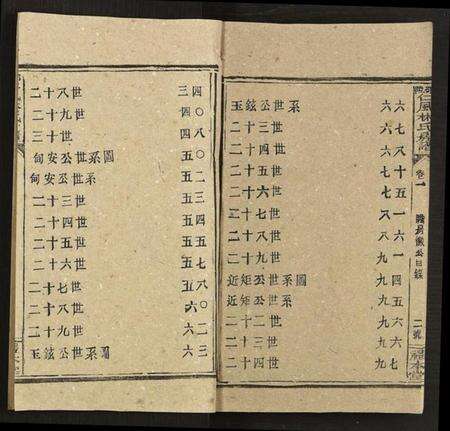 二十八世 三四
二十九世 四〇
三十世 四八
甸安公世系圖 五〇
甸安公世系 五二
二十三世 五三
二十四世 五四
二十五世 五五
二十六世 五七
二十七世 五八
二十八世 六〇
二十九世 六二
玉鉉公世系圖 六三
玉鉉公世系 六六
二十三世 六七
二十四世 六八
二十五世 七十
二十六世 七五
二十七世 八一
二十八世 八六
二十九世 九一
近矩公世系圖 九四
近矩公世系 九五
二十二世 九六
二十三世 九六
二十四世 九七
仁風林氏房譜
卷一
公目錄
二號
本堂